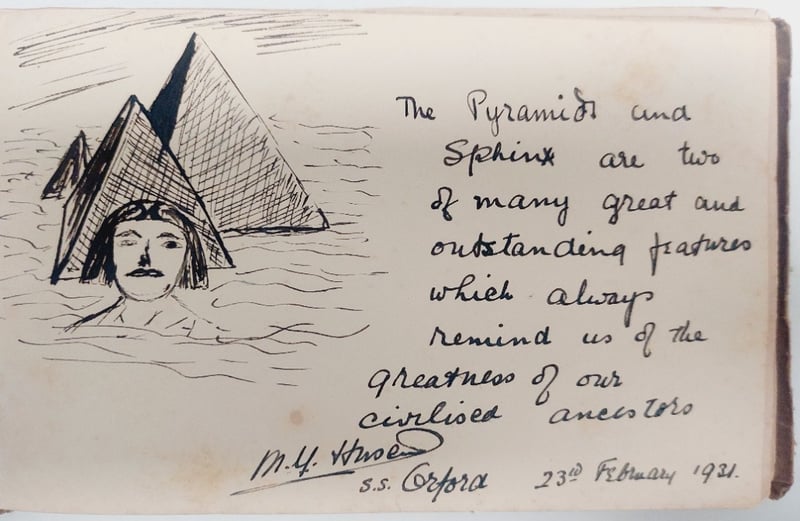 The Pyramids and
Sphinx are two
of many great and
outstanding features
which always
remind us of the
greatness of our
civilised ancestors
M.Y. Husein
s.s. Orford 23rd February 1931.